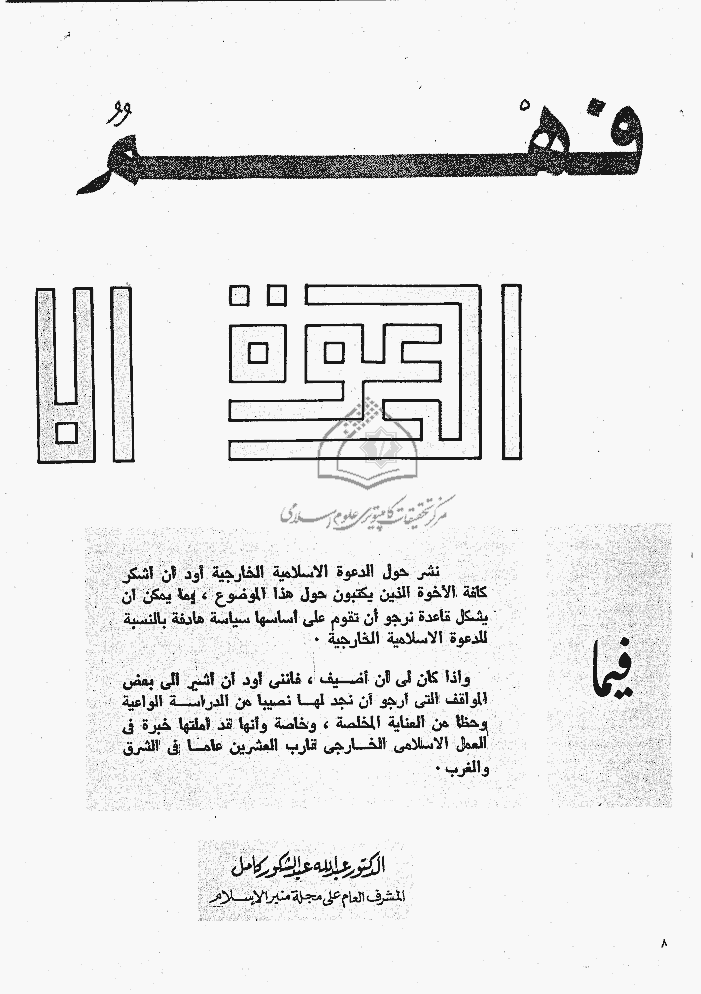 فهم
الدعوة الا
مركز تحقيقات كامپيوترى علوم اسلامى
فيما
نشر حول الدعوة الاسلامية الخارجية أود أن أشكر
كافة الأخوة الذين يكتبون حول هذا الموضوع ، بما يمكن ان
يشكل قاعدة نرجو أن تقوم على أساسها سياسة هادفة بالنسبة
للدعوة الاسلامية الخارجية ·
واذا كان لى أن أضـيف ، فاننى أود أن أشير الى بعض
المواقف التى أرجو أن نجد لهـا نصيبا من الدراسـة الواعية
وحظا من العناية المخلصة ، وخاصة وأنها قد أملتها خبرة فى
العمل الاسلامى الخـارجى قارب العشرين عامـا فى الشرق
والغرب ·
الدكتور عبدالله عبدالشكور كامل
المشرف العام على مجلة منبر الإسلام
٨